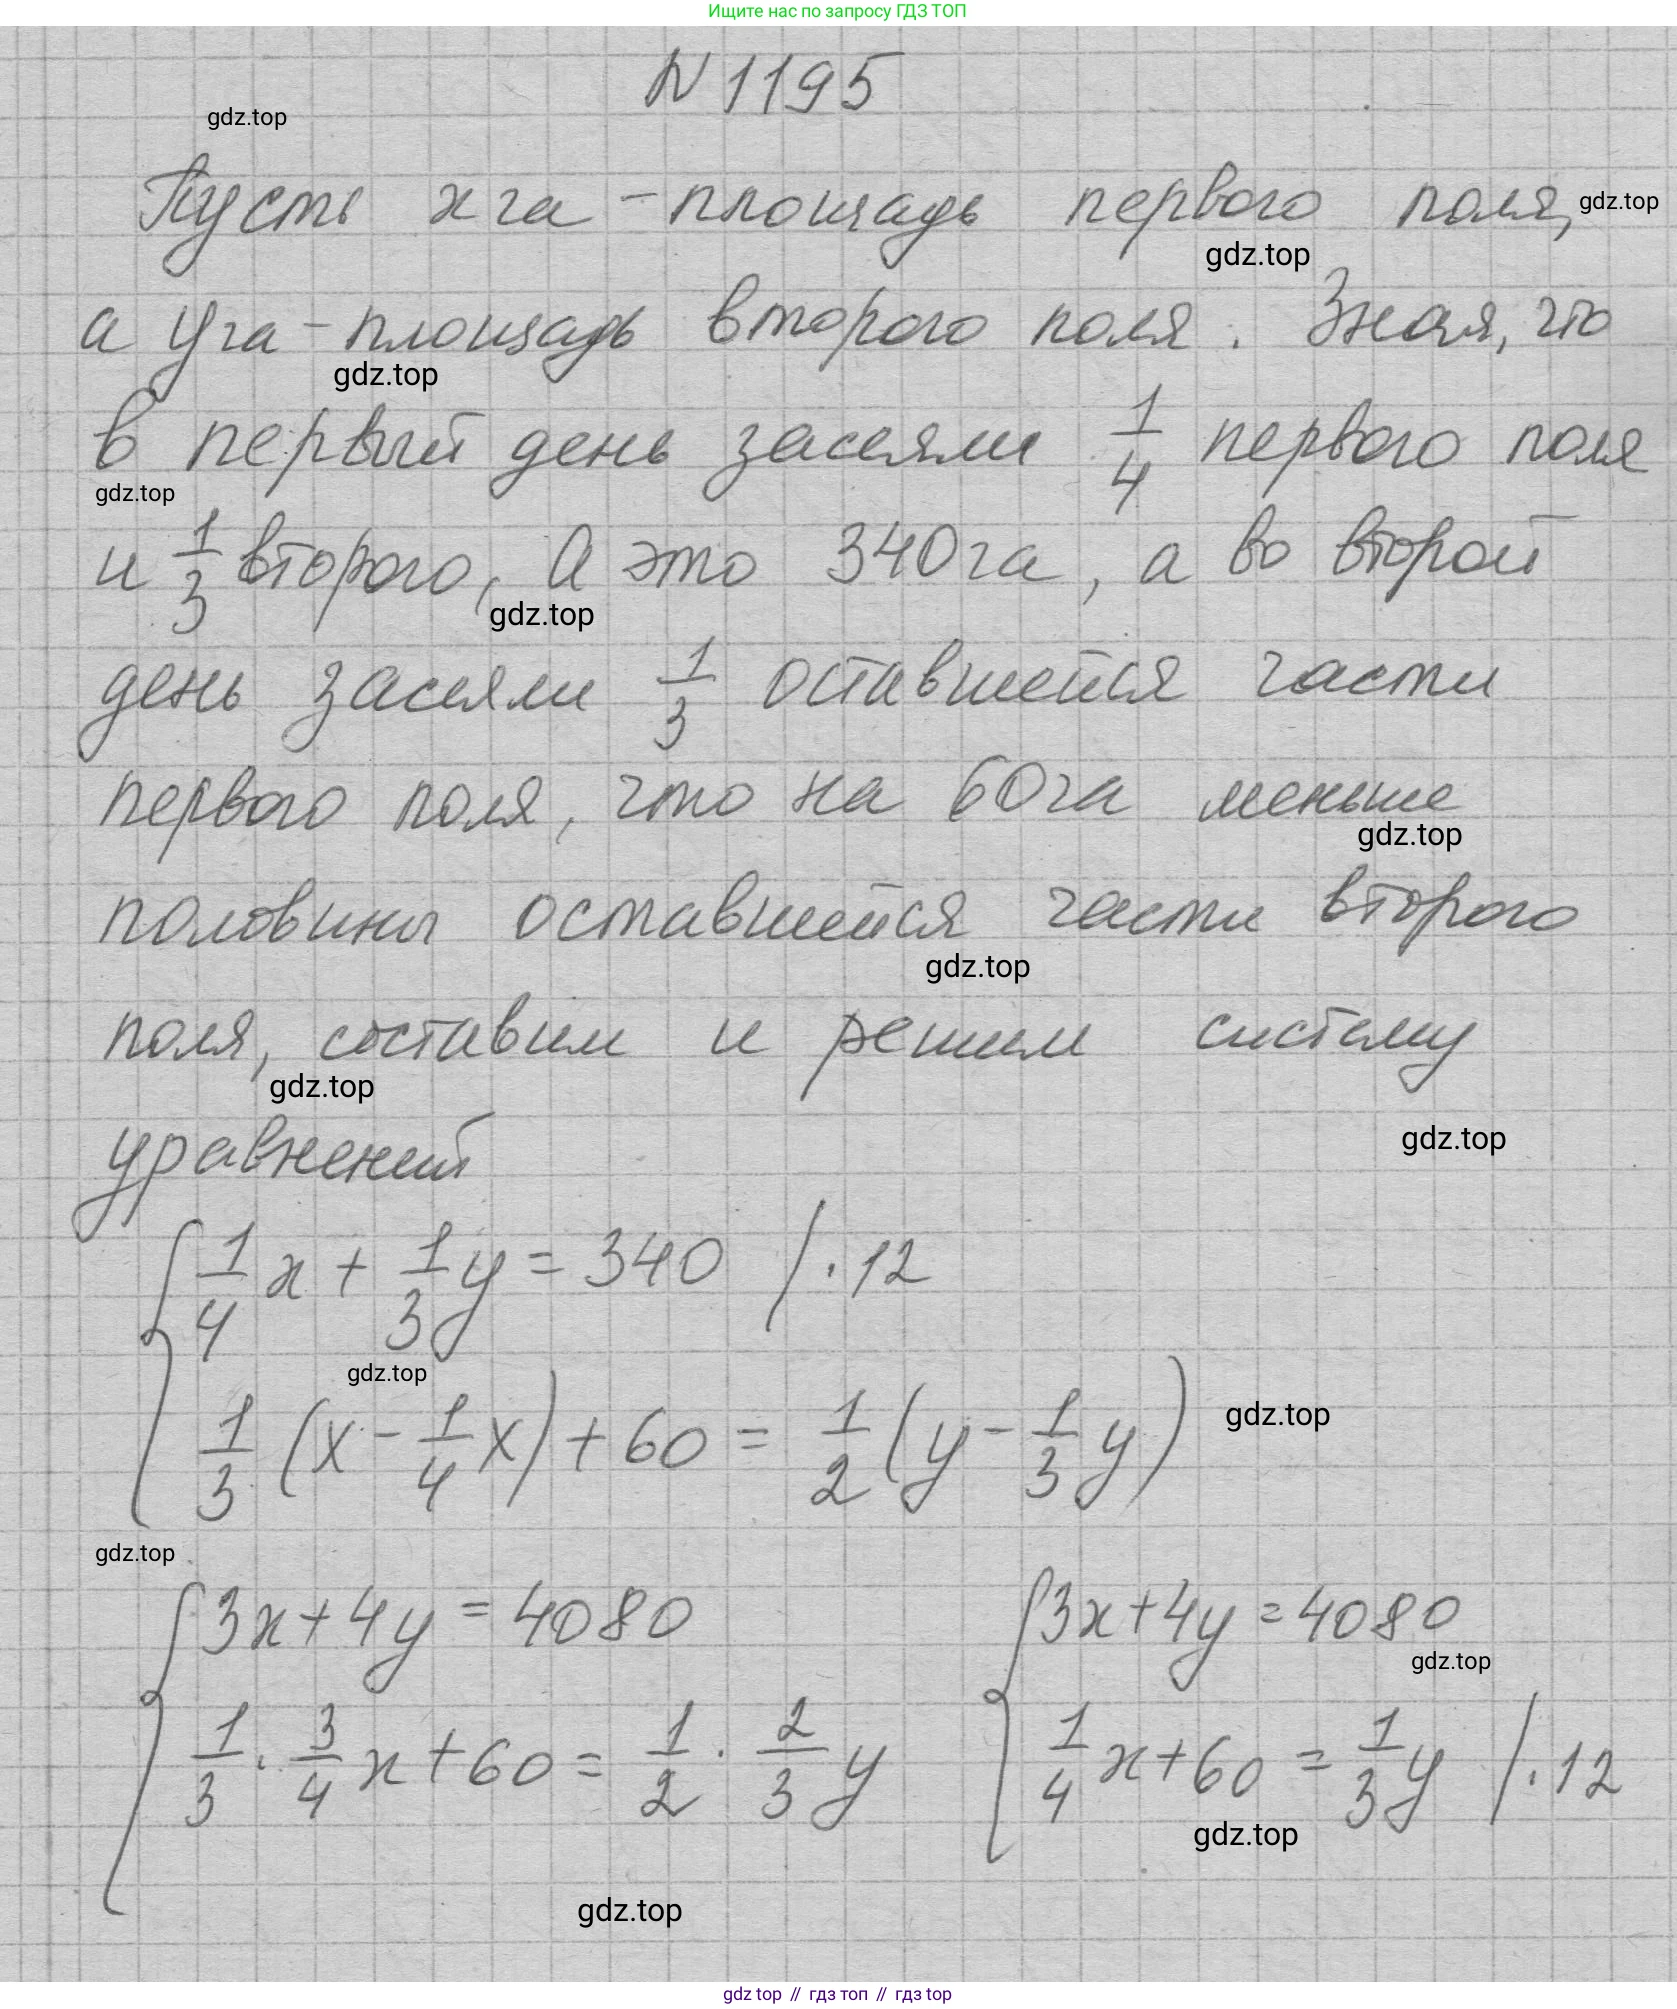 Ищите нас по запросу ГДЗ ТОП
N 1195
gdz.top
Пусть x га - площадь первого поля, gdz.top
gdz.top
а y га - площадь второго поля. Зная, что
gdz.top
в первый день засеяли 1/4 первого поля
gdz.top
и 1/3 второго, а это 340 га, а во второй
gdz.top
день засеяли 1/3 оставшейся части
первого поля, что на 60 га меньше
gdz.top
половины оставшейся части второго
gdz.top
поля, составим и решим систему
gdz.top
gdz.top
уравнений
{ 1/4 x + 1/3 y = 340 / · 12
gdz.top
1/3 (x - 1/4 x) + 60 = 1/2 (y - 1/3 y) gdz.top
gdz.top
{ 3x + 4y = 4080 { 3x + 4y = 4080
gdz.top
1/3 · 3/4 x + 60 = 1/2 · 2/3 y 1/4 x + 60 = 1/3 y / · 12
gdz.top
gdz.top
gdz top // гдз топ // гдз top